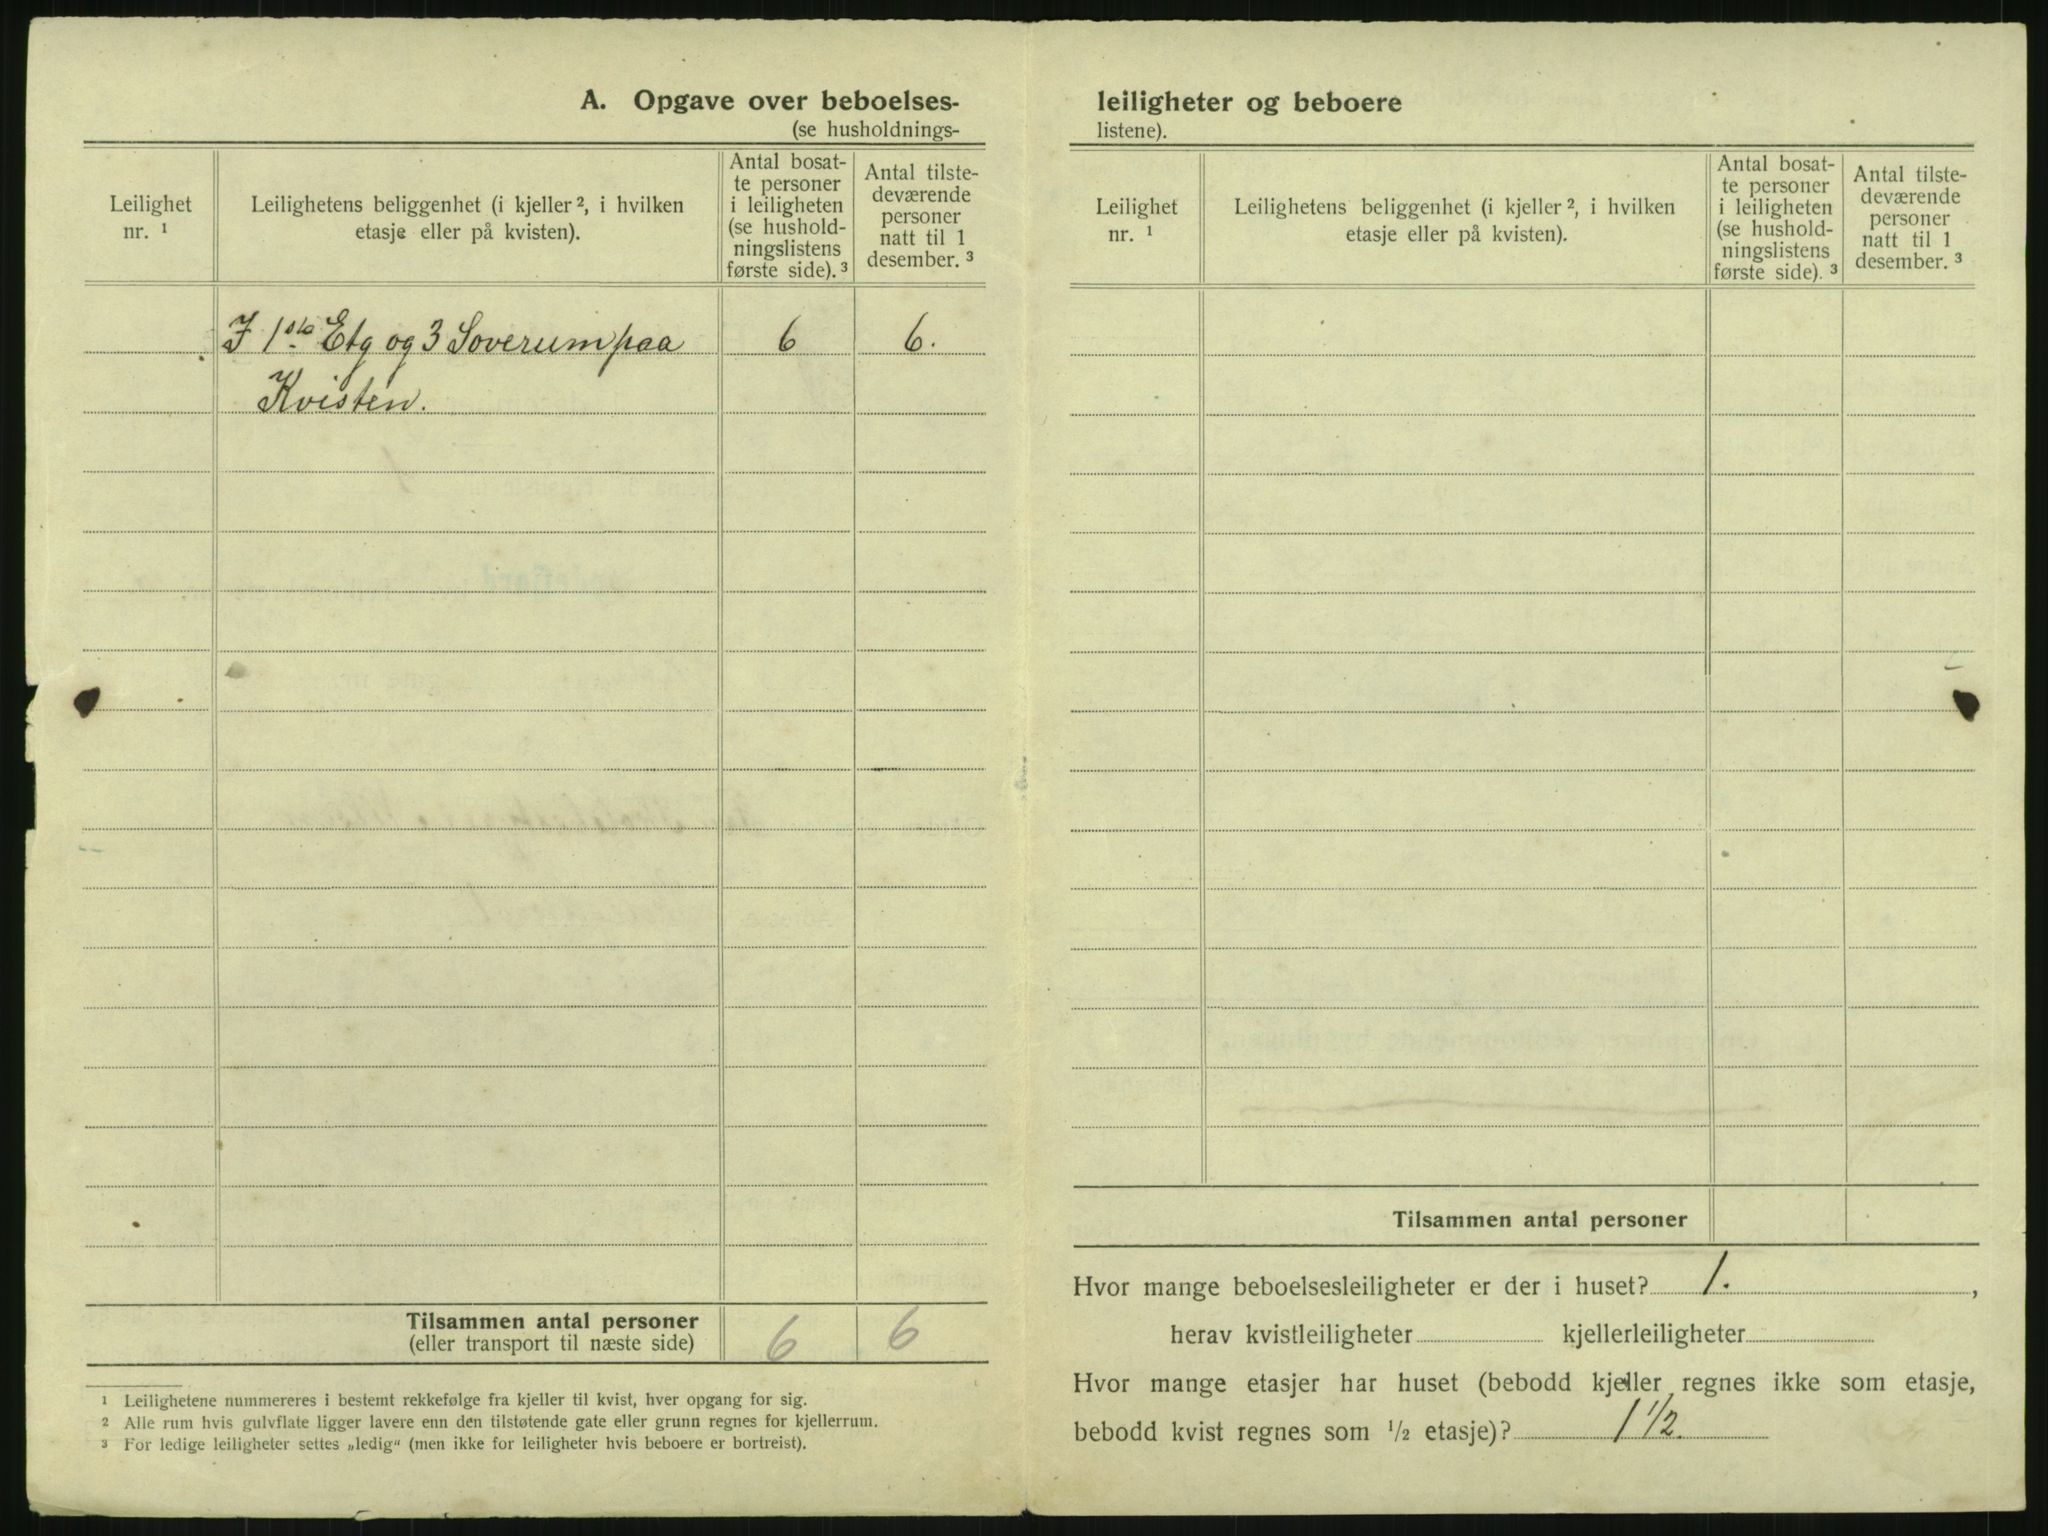 A. Opgave over beboelses-
(se husholdnings-
Leilighet
nr. ¹
Leilighetens beliggenhet (i kjeller ², i hvilken
etasje eller på kvisten).
Antal bosat-
te personer
i leiligheten
(se hushold-
ningslistens
første side). ³
Antal tilste-
deværende
personer
natt til 1
desember. ³
I 1ste Etg og 3 Soverum paa 6 6.
Kvisten.
Tilsammen antal personer
(eller transport til næste side) 6 6
¹ Leilighetene nummereres i bestemt rekkefølge fra kjeller til kvist, hver opgang for sig.
² Alle rum hvis gulvflate ligger lavere enn den tilstøtende gate eller grunn regnes for kjellerrum.
³ For ledige leiligheter settes „ledig“ (men ikke for leiligheter hvis beboere er bortreist).
leiligheter og beboere
listene).
Leilighet
nr. ¹
Leilighetens beliggenhet (i kjeller ², i hvilken
etasje eller på kvisten).
Antal bosat-
te personer
i leiligheten
(se hushold-
ningslistens
første side). ³
Antal tilste-
deværende
personer
natt til 1
desember. ³
Tilsammen antal personer
Hvor mange beboelsesleiligheter er der i huset? 1. ,
herav kvistleiligheter kjellerleiligheter
Hvor mange etasjer har huset (bebodd kjeller regnes ikke som etasje,
bebodd kvist regnes som ½ etasje)? 1 ½.